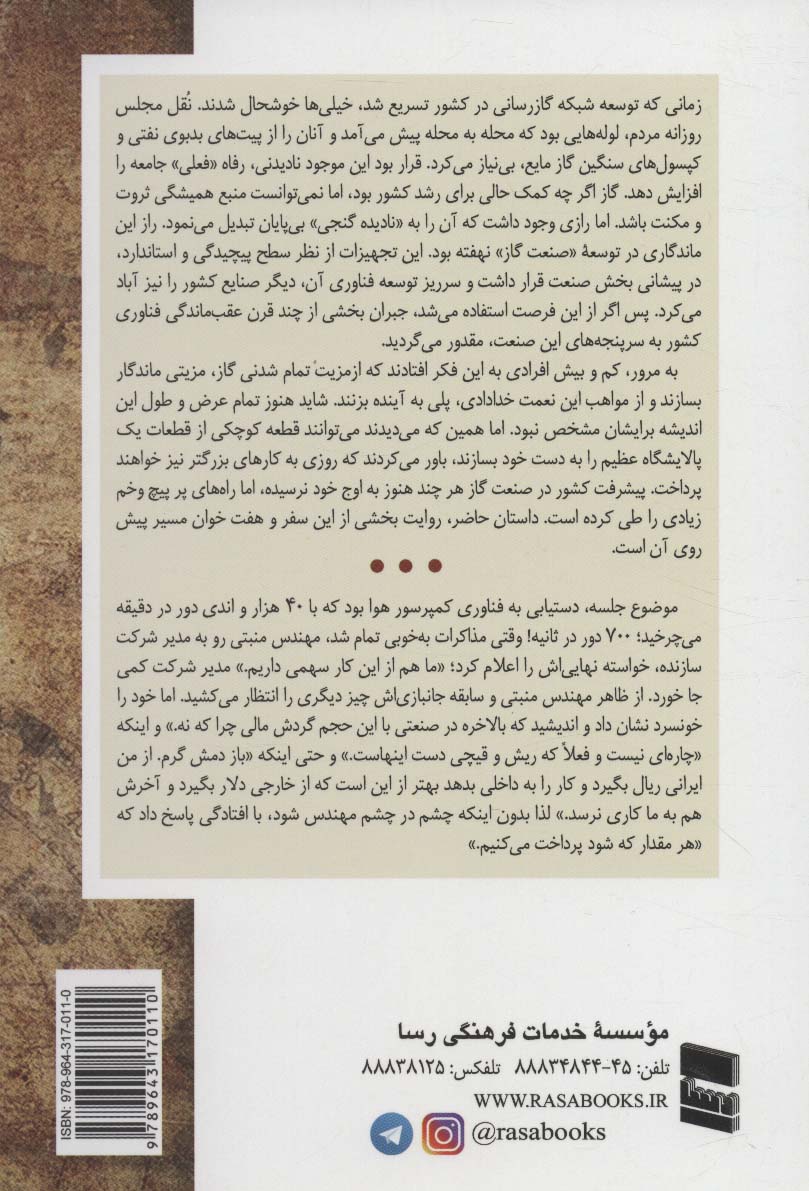 زمانی که توسعه شبکه گازرسانی در کشور تسریع شد، خیلی‌ها خوشحال شدند. نُقل مجلس
روزانه مردم، لوله‌هایی بود که محله به محله پیش می‌آمد و آنان را از پیت‌های بدبوی نفتی و
کپسول‌های سنگین گاز مایع، بی‌نیاز می‌کرد. قرار بود این موجود نادیدنی، رفاه «فعلی» جامعه را
افزایش دهد. گاز اگر چه کمک حالی برای رشد کشور بود، اما نمی‌توانست منبع همیشگی ثروت
و مکنت باشد. اما رازی وجود داشت که آن را به «نادیده گنجی» بی‌پایان تبدیل می‌نمود. راز این
ماندگاری در توسعهٔ «صنعت گاز» نهفته بود. این تجهیزات از نظر سطح پیچیدگی و استاندارد،
در پیشانی بخش صنعت قرار داشت و سرریز توسعه فناوری آن، دیگر صنایع کشور را نیز آباد
می‌کرد. پس اگر از این فرصت استفاده می‌شد، جبران بخشی از چند قرن عقب‌ماندگی فناوری
کشور به سرپنجه‌های این صنعت، مقدور می‌گردید.
به مرور، کم و بیش افرادی به این فکر افتادند که ازمزیتْ تمام شدنی گاز، مزیتی ماندگار
بسازند و از مواهب این نعمت خدادادی، پلی به آینده بزنند. شاید هنوز تمام عرض و طول این
اندیشه برایشان مشخص نبود. اما همین که می‌دیدند می‌توانند قطعه کوچکی از قطعات یک
پالایشگاه عظیم را به دست خود بسازند، باور می‌کردند که روزی به کارهای بزرگتر نیز خواهند
پرداخت. پیشرفت کشور در صنعت گاز هر چند هنوز به اوج خود نرسیده، اما راه‌های پر پیچ وخم
زیادی را طی کرده است. داستان حاضر، روایت بخشی از این سفر و هفت خوان مسیر پیش
روی آن است.
موضوع جلسه، دستیابی به فناوری کمپرسور هوا بود که با ۴۰ هزار و اندی دور در دقیقه
می‌چرخید؛ ۷۰۰ دور در ثانیه! وقتی مذاکرات به‌خوبی تمام شد، مهندس منبتی رو به مدیر شرکت
سازنده، خواسته نهایی‌اش را اعلام کرد؛ «ما هم از این کار سهمی داریم.» مدیر شرکت کمی
جا خورد. از ظاهر مهندس منبتی و سابقه جانبازی‌اش چیز دیگری را انتظار می‌کشید. اما خود را
خونسرد نشان داد و اندیشید که بالاخره در صنعتی با این حجم گردش مالی چرا که نه.» و اینکه
«چاره‌ای نیست و فعلاً که ریش و قیچی دست اینهاست.» و حتی اینکه «باز دمش گرم. از من
ایرانی ریال بگیرد و کار را به داخلی بدهد بهتر از این است که از خارجی دلار بگیرد و آخرش
هم به ما کاری نرسد.» لذا بدون اینکه چشم در چشم مهندس شود، با افتادگی پاسخ داد که
«هر مقدار که شود پرداخت می‌کنیم.»
مؤسسهٔ خدمات فرهنگی رسا
تلفن: ۴۵-۸۸۸۳۴۸۴۴ تلفکس: ۸۸۸۳۸۱۲۵
WWW.RASABOOKS.IR
@rasabooks
رسا
ISBN: 978-964-317-011-0
9 789643 170110